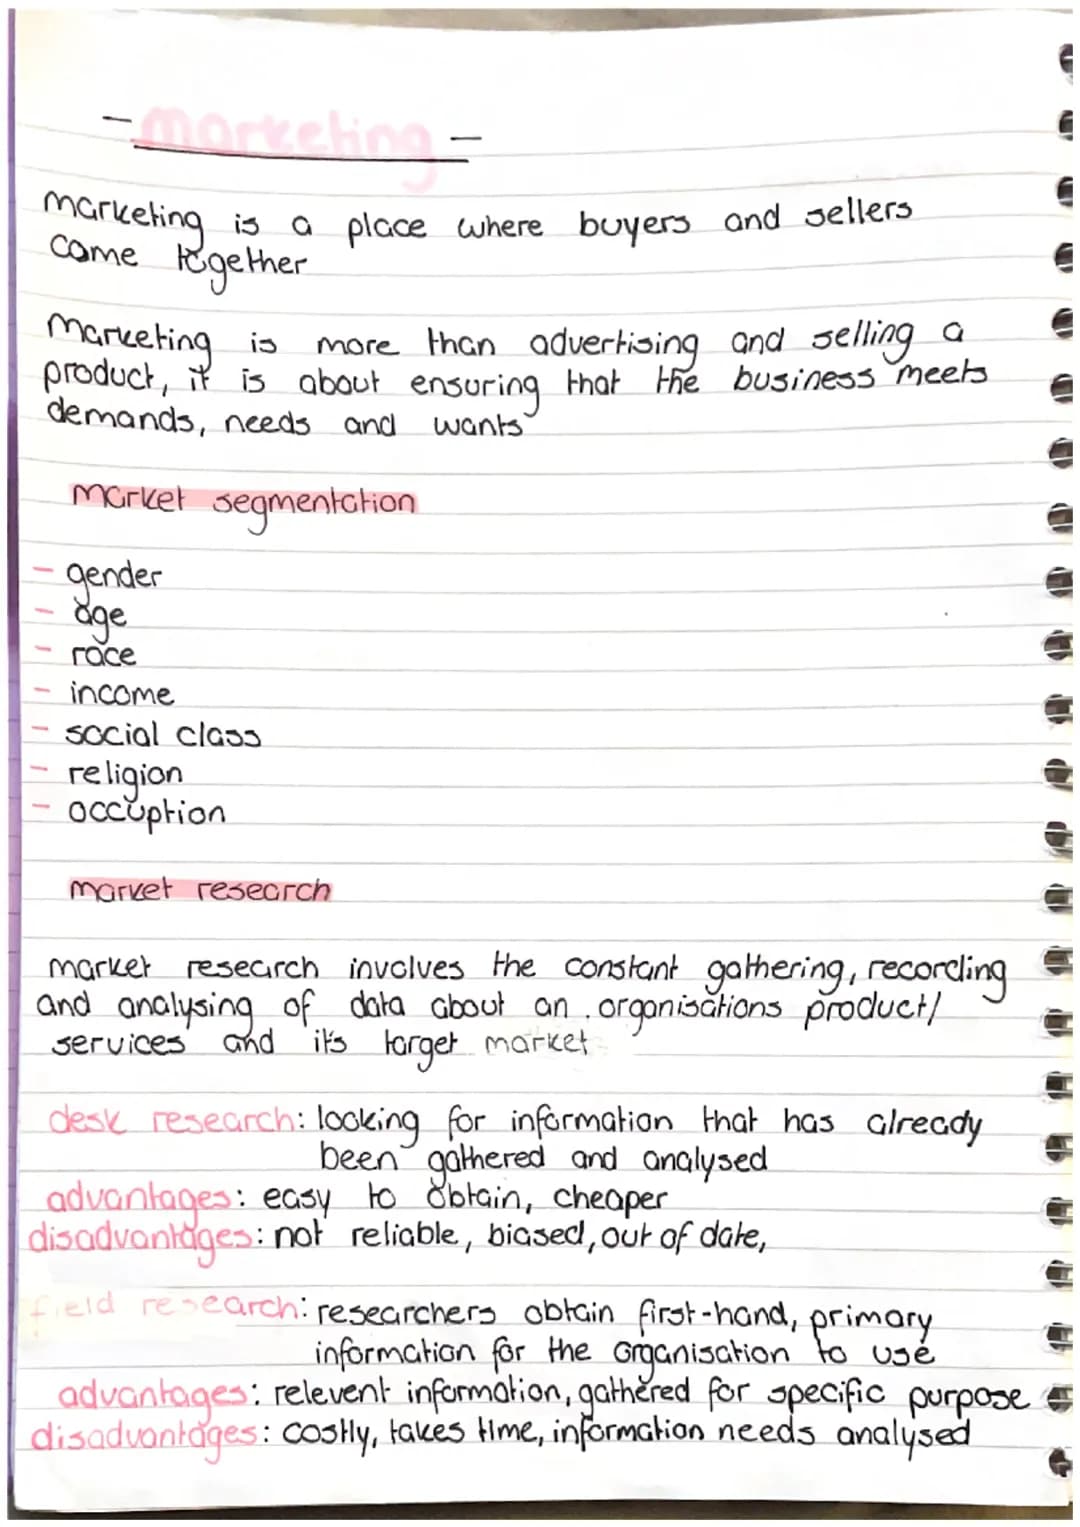 - marketing -
marketing is a place where buyers and sellers
come together
Marketing is more than advertising and selling a
product, it is about ensuring that the business meets
demands, needs and wants
market segmentation
- gender
- age
- race
- income
- social class
- religion
- occuption
market research
market research involves the constant gathering, recording
and analysing of data about an organisations product/
services and it's target market
desk research: looking for information that has already
been gathered and analysed
advantages: easy to obtain, cheaper
disadvantages: not reliable, biased, out of date,
field research: researchers obtain first-hand, primary
information for the organisation to use
advantages: relevent information, gathered for specific purpose
disadvantages: costly, takes time, information needs analysed